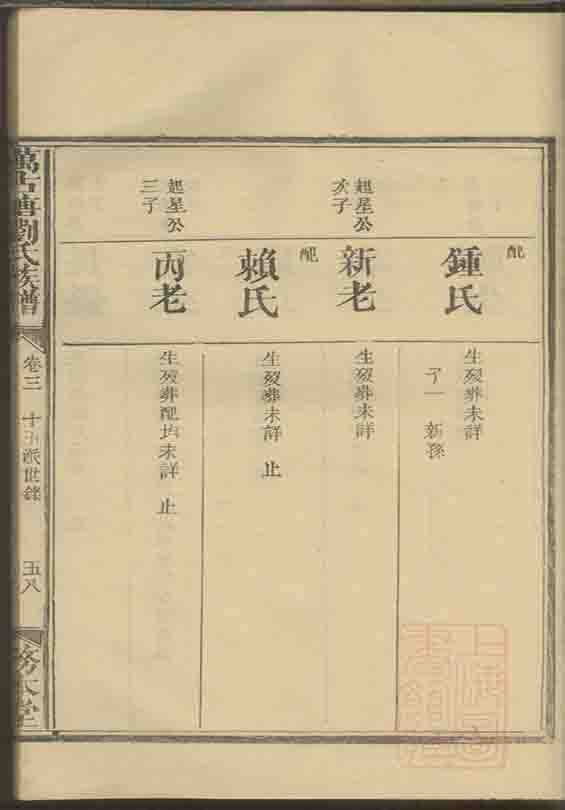 配
鍾氏
生歿葬未詳
子一 新孫
起星公
次子
新老
生歿葬未詳
配
賴氏
生歿葬未詳 止
起星公
三子
丙老
生歿葬配均未詳 止
劉氏族譜
卷三
世錄
五八
務本堂
上海圖書館藏